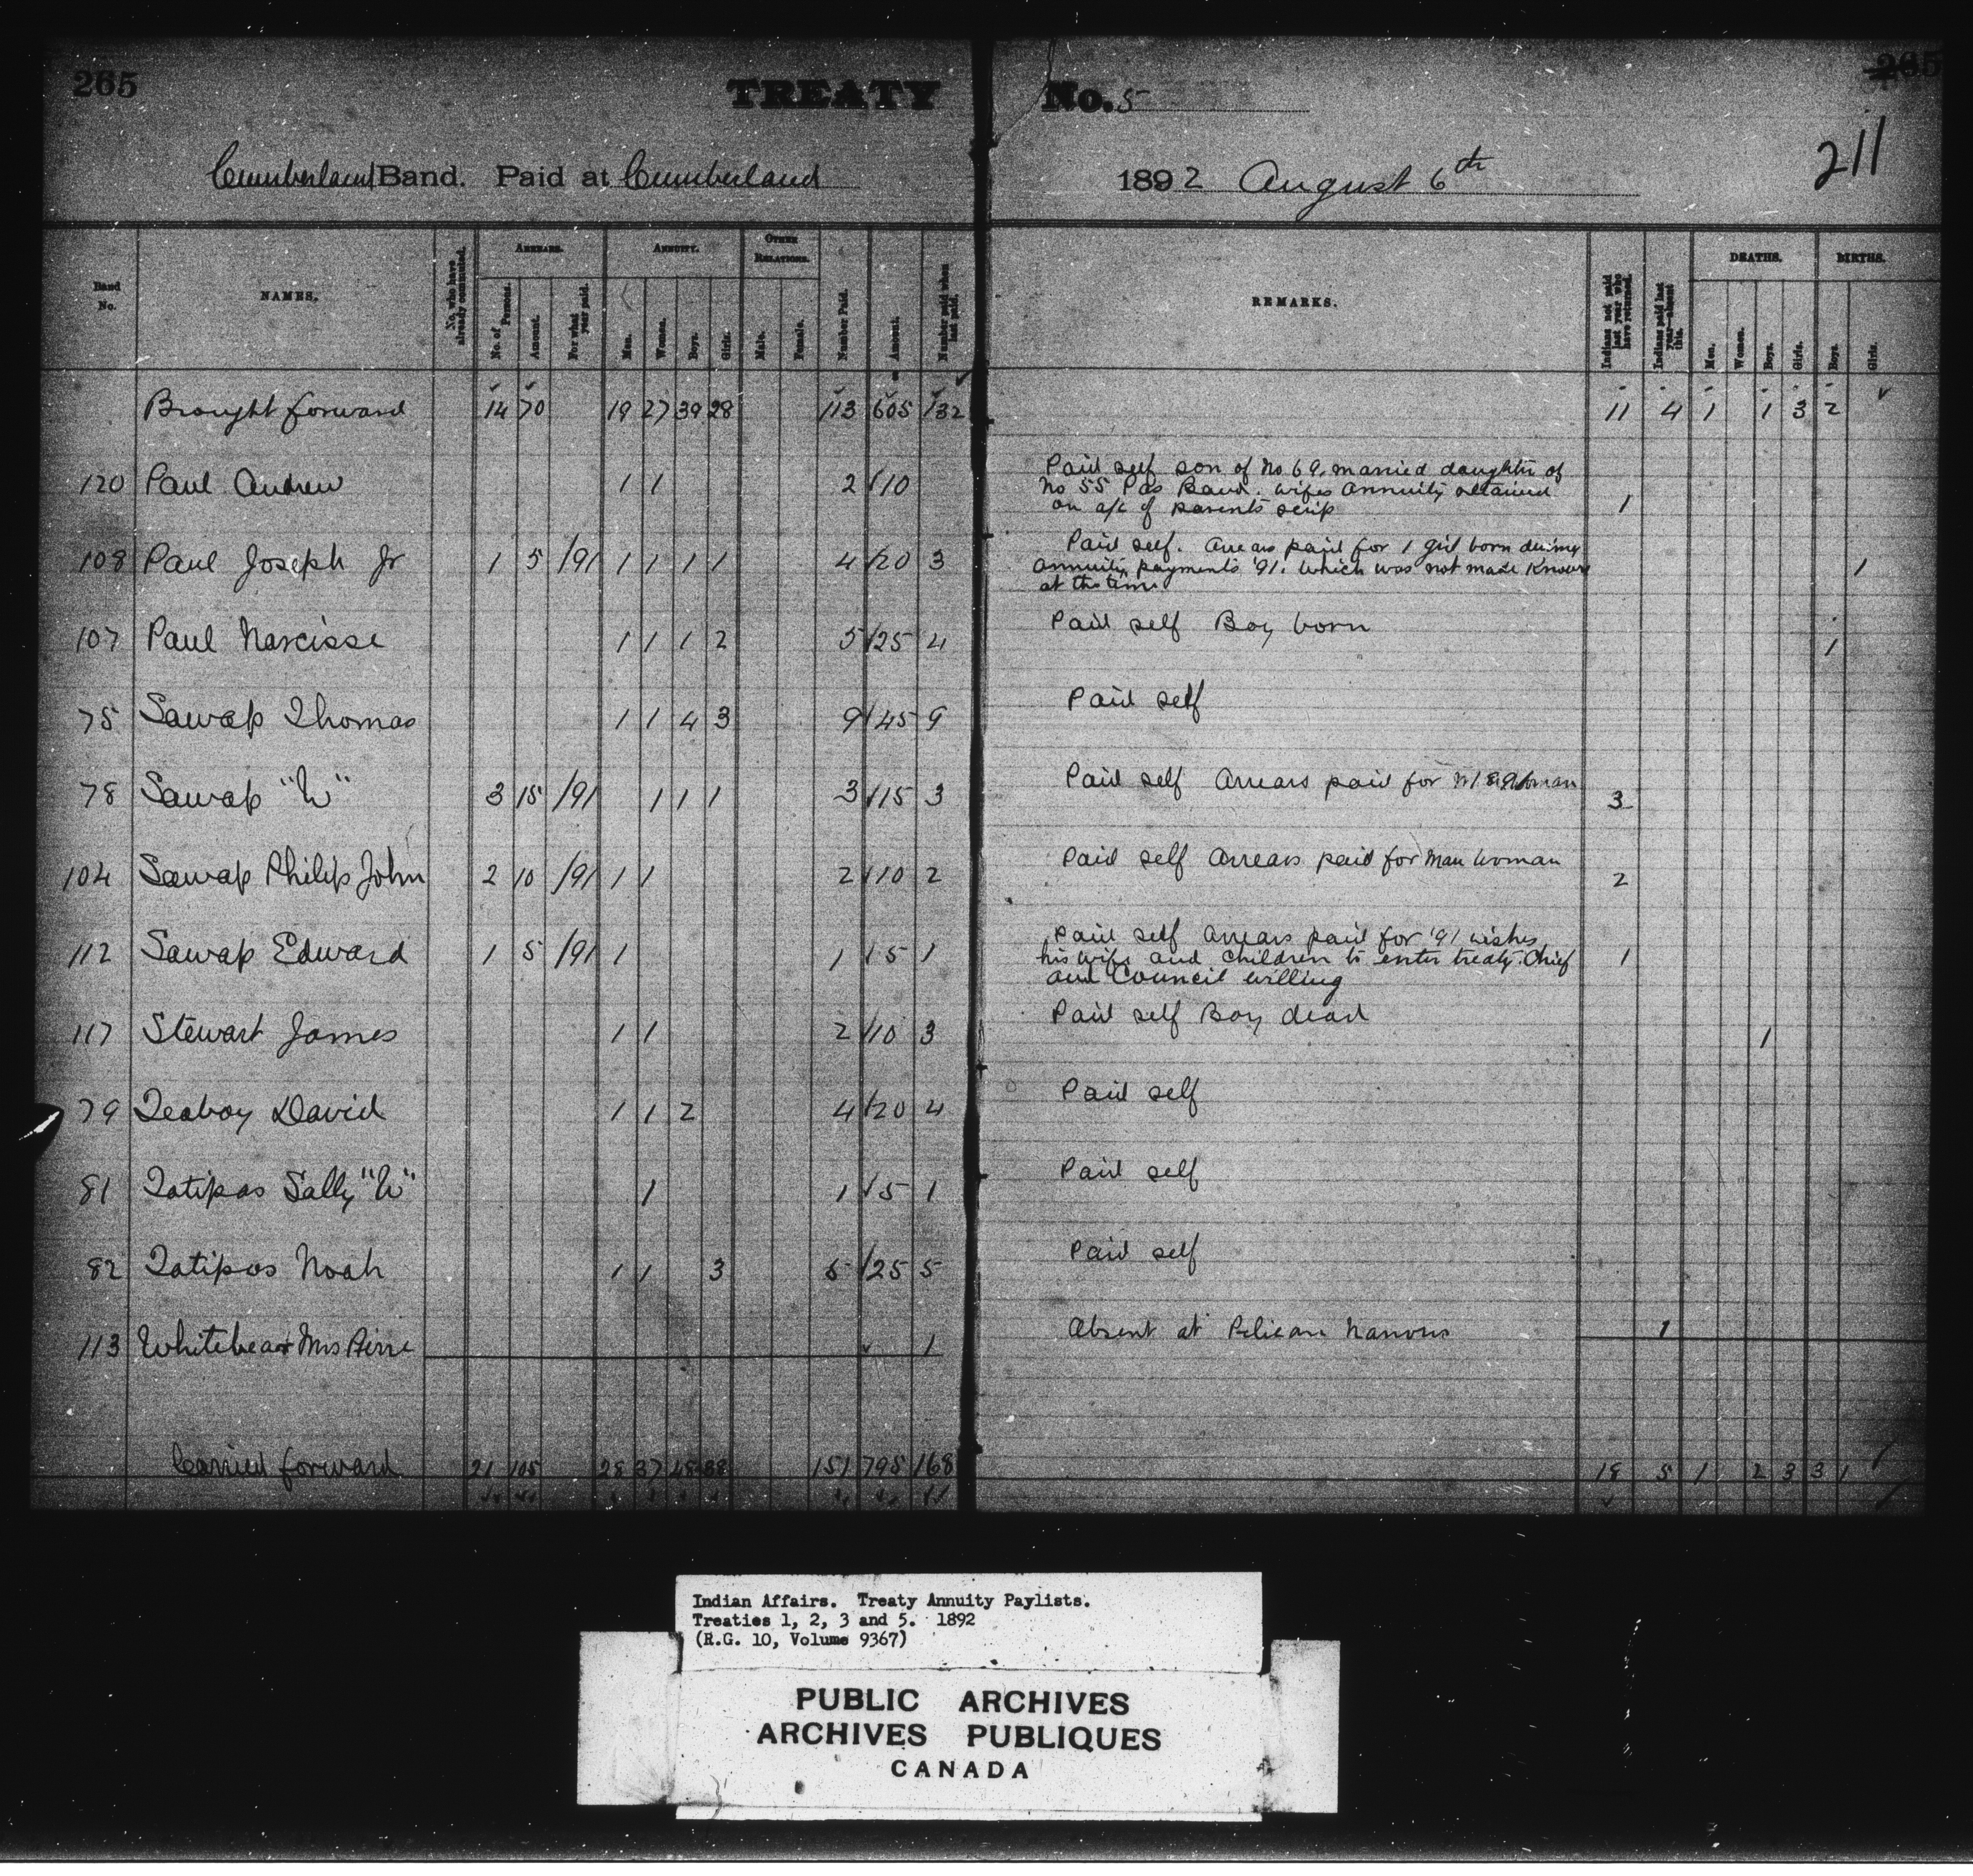 265 TREATY No. 5 265
211
Cumberland Band. Paid at Cumberland 1892 August 6th
Band No.
NAMES.
No. who have already commuted.
ARREARS.
No. of Persons.
Amount.
For what year paid.
ANNUITY.
Men.
Women.
Boys.
Girls.
OTHER RELATIONS.
Male.
Female.
Number Paid.
Amount.
Number paid when last paid.
REMARKS.
Indians not paid last year who have returned.
Indians paid last year—absent this.
DEATHS.
Men.
Women.
Boys.
Girls.
BIRTHS.
Boys.
Girls.
Brought forward 14 70 19 27 39 28 113 605 132 11 4 1 1 3 2
120 Paul Andrew 1 1 2 10 1
Paid self son of No 69. married daughter of
No 55 Pas Band. wifes annuity retained
on a/c of parents scrip
108 Paul Joseph Jr 1 5 /91 1 1 1 1 4 20 3 1
Paid self. Arrears paid for 1 girl born during
annuity payments '91. which was not made known
at the time
107 Paul Narcisse 1 1 1 2 5 25 4 Paid self Boy born 1
75 Sawap Thomas 1 1 4 3 9 45 9 Paid self
78 Sawap "W" 3 15 /91 1 1 1 3 15 3 Paid self Arrears paid for 3
104 Sawap Philip John 2 10 /91 1 1 2 10 2 Paid self Arrears paid for man woman 2
112 Sawap Edward 1 5 /91 1 1 5 1 1
Paid self Arrears paid for '91 wishes
his wife and children to enter treaty. Chief
and Council willing
117 Stewart James 1 1 2 10 3 Paid self Boy dead 1
79 Teaboy David 1 1 2 4 20 4 Paid self
81 Tatipas Sally "W" 1 1 5 1 Paid self
82 Tatipas Noah 1 1 3 5 25 5 Paid self
113 Whitebear Mrs Pierre 1 Absent at Pelican Narrows 1
Carried forward 21 105 28 37 48 38 151 795 168 18 5 1 2 3 3 1
Indian Affairs. Treaty Annuity Paylists.
Treaties 1, 2, 3 and 5. 1892
(R.G. 10, Volume 9367)
PUBLIC ARCHIVES
ARCHIVES PUBLIQUES
CANADA